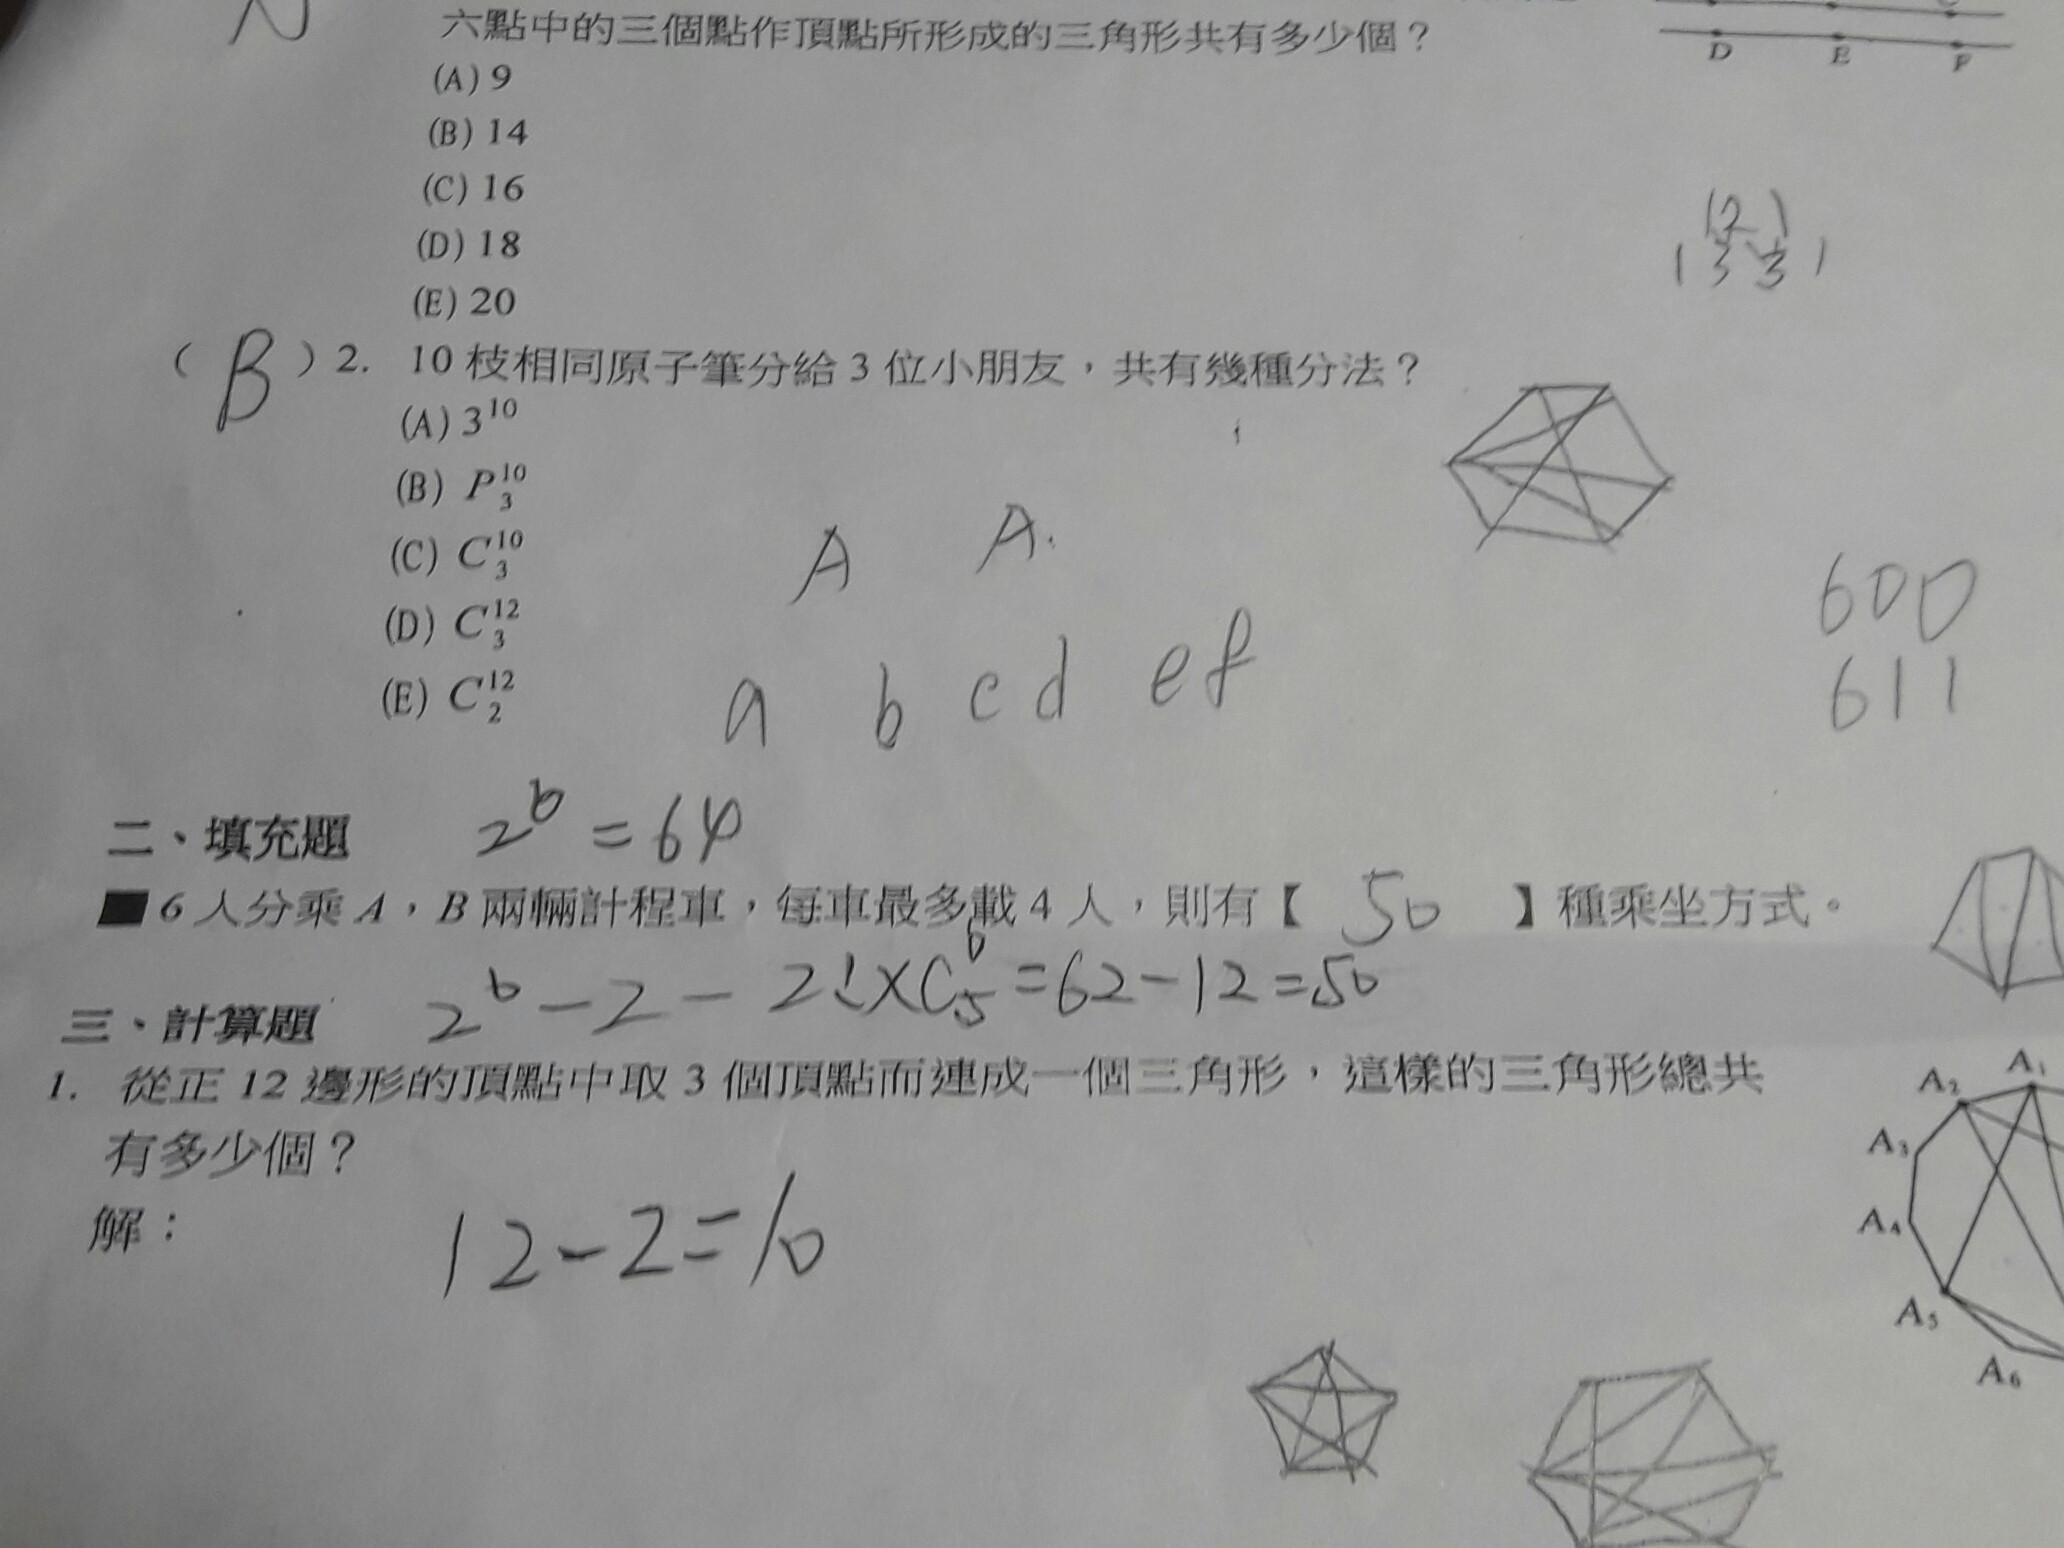 六點中的三個點作頂點所形成的三角形共有多少個？
D E F
(A) 9
(B) 14
(C) 16
(D) 18
(E) 20
(2)
1 3 3 1
( B ) 2. 10 枝相同原子筆分給 3 位小朋友，共有幾種分法？
(A) 3^10
(B) P^10_3
(C) C^10_3
(D) C^12_3
(E) C^12_2
A A.
a b c d e f
600
611
二、填充題 2^6 = 64
■ 6 人分乘 A，B 兩輛計程車，每車最多載 4 人，則有【 50 】種乘坐方式。
2^6 - 2 - 2! × C^6_5 = 62 - 12 = 50
三、計算題
1. 從正 12 邊形的頂點中取 3 個頂點而連成一個三角形，這樣的三角形總共
有多少個？
解：
12 - 2 = 10
A₁
A₂
A₃
A₄
A₅
A₆